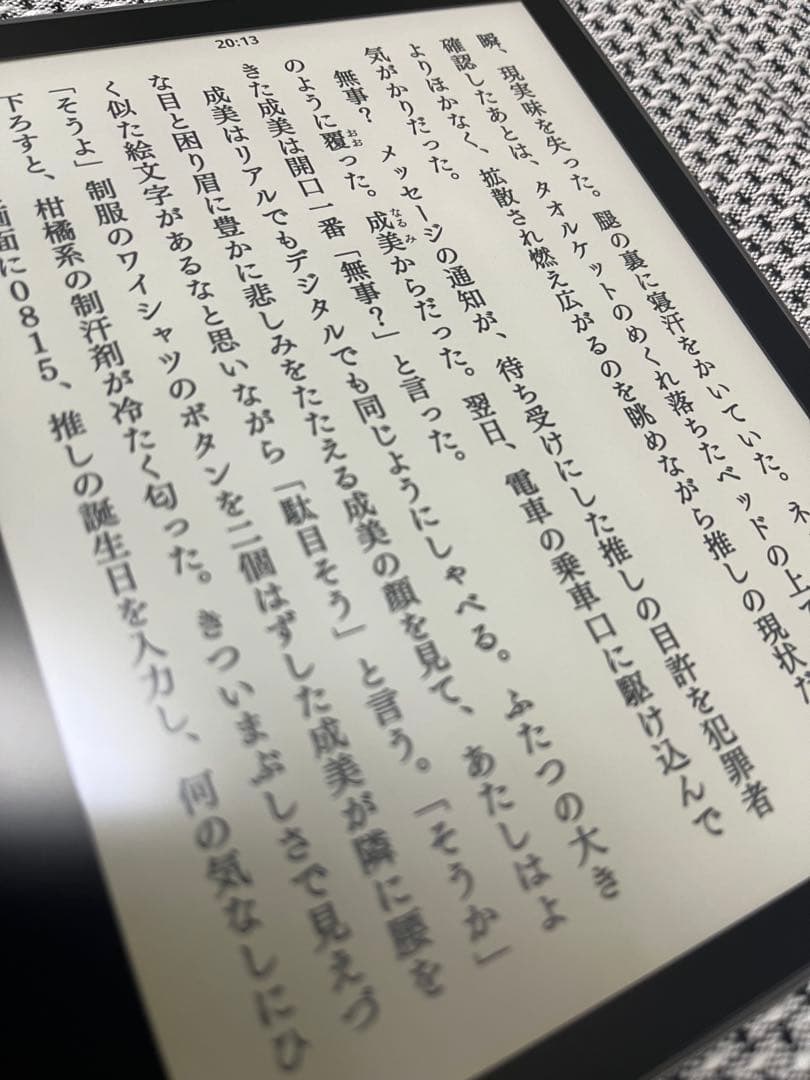 20:13
瞬、現実味を失った。腿の裏に寝汗をかいていた。ネ
確認したあとは、タオルケットのめくれ落ちたベッドの上で
よりほかなく、拡散され燃え広がるのを眺めながら推しの現状だ
気がかりだった。
無事? メッセージの通知が、待ち受けにした推しの目許を犯罪者
のように覆った。成美からだった。翌日、電車の乗車口に駆け込んで
おお
なるみ
きた成美は開口一番「無事?」と言った。
成美はリアルでもデジタルでも同じようにしゃべる。ふたつの大き
な目と困り眉に豊かに悲しみをたたえる成美の顔を見て、あたしはよ
く似た絵文字があるなと思いながら「駄目そう」と言う。「そうか」
「そうよ」制服のワイシャツのボタンを二個はずした成美が隣に腰を
下ろすと、柑橘系の制汗剤が冷たく匂った。きついまぶしさで見えづ
画面に0815、推しの誕生日を入力し、何の気なしにひ